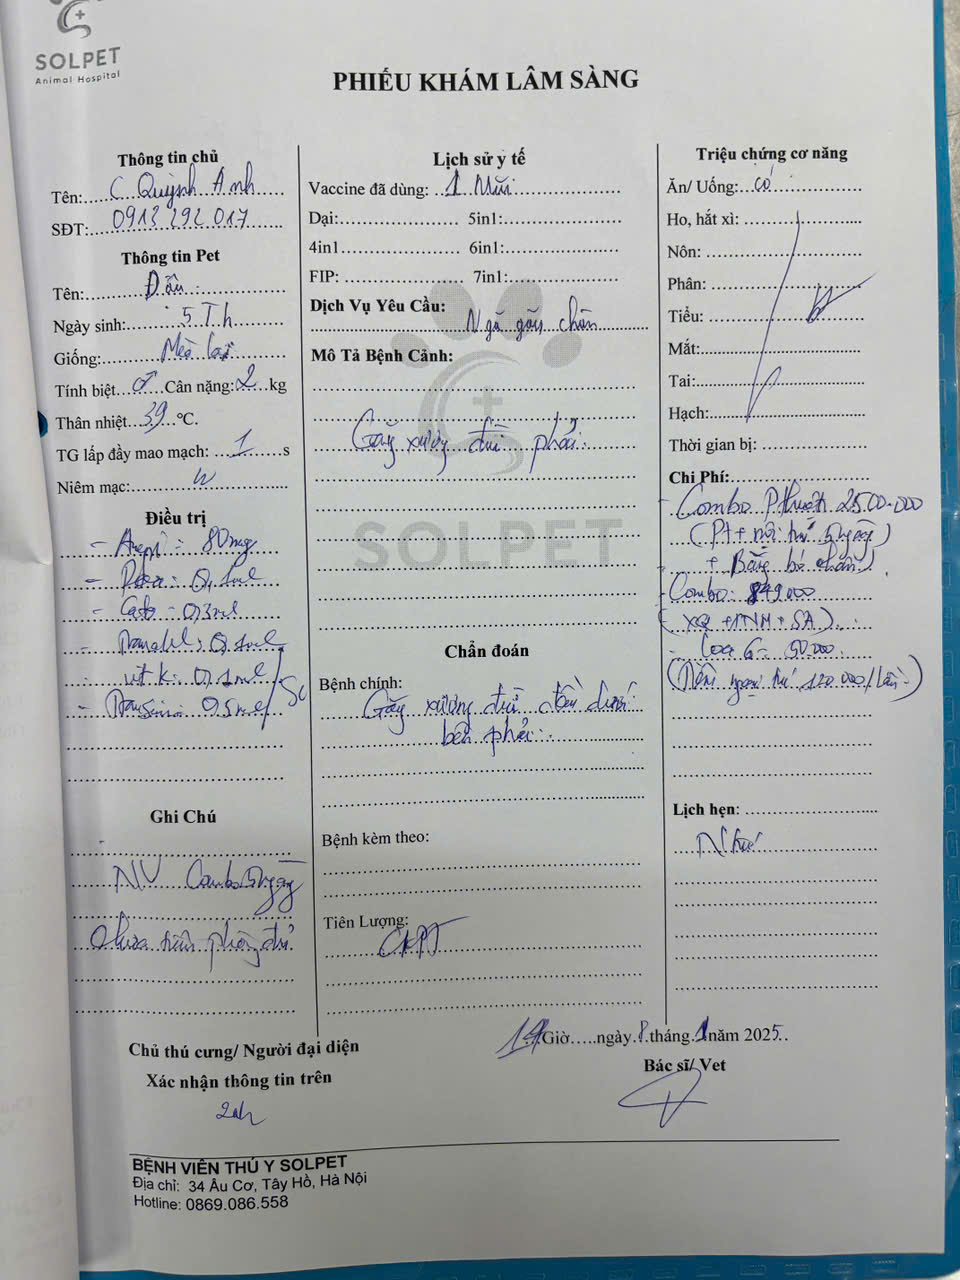 SOLPET
Animal Hospital
PHIẾU KHÁM LÂM SÀNG
Thông tin chủ
Tên: C Quỳnh Anh
SĐT: 0912 292 017
Thông tin Pet
Tên: Đậu
Ngày sinh: 5 Th
Giống: Mèo lai
Tính biệt ♂ Cân nặng: 2 kg
Thân nhiệt 39 °C.
TG lấp đầy mao mạch: 1 s
Niêm mạc:
Điều trị
- : 80mg
- : 0,1ml
- Cato: 0,3ml
- : 0,1ml
- vit k: 0,1ml
- 0,5ml
Ghi Chú
NV Combo 5 ngày
Chưa tiêm phòng đủ
Lịch sử y tế
Vaccine đã dùng: 1 Mũi
Dại: 5in1:
4in1 6in1:
FIP: 7in1:
Dịch Vụ Yêu Cầu:
Ngã gãy chân
Mô Tả Bệnh Cảnh:
Gãy xương đùi phải.
SOLPET
Chẩn đoán
Bệnh chính:
Gãy xương đùi đầu dưới
bên phải.
Bệnh kèm theo:
Tiên Lượng:
CKPT
Triệu chứng cơ năng
Ăn/ Uống: có
Ho, hắt xì:
Nôn:
Phân:
Tiểu:
Mắt:
Tai:
Hạch:
Thời gian bị:
Chi Phí:
- Combo P.thuật 2500.000
(PT + nội trú 5 ngày)
+ Băng bó chân)
- Combo: 849.000
(XQ + XNM + SA)
- Loa G = 50.000.
(Tiêm ngoại trú 120.000/Lần)
Lịch hẹn:
Như
19 Giờ.....ngày 8 tháng 1 năm 2025..
Chủ thú cưng/ Người đại diện
Xác nhận thông tin trên
Bác sĩ/ Vet
BỆNH VIỆN THÚ Y SOLPET
Địa chỉ: 34 Âu Cơ, Tây Hồ, Hà Nội
Hotline: 0869.086.558